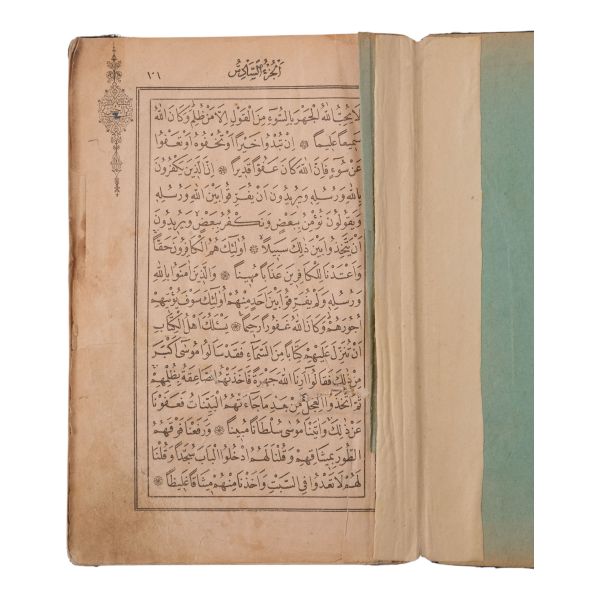 الجزء السادس
١٠١
لَا يُحِبُّ اللهُ الْجَهْرَ بِالسُّوٓءِ مِنَ الْقَوْلِ اِلَّا مَنْ ظُلِمَ وَكَانَ اللهُ
سَمِيعًا عَلِيمًا ۞ اِنْ تُبْدُوا خَيْرًا اَوْ تُخْفُوهُ اَوْ تَعْفُوا
عَنْ سُوٓءٍ فَاِنَّ اللهَ كَانَ عَفُوًّا قَدِيرًا ۞ اِنَّ الَّذِينَ يَكْفُرُونَ
بِاللهِ وَرُسُلِهِ وَيُرِيدُونَ اَنْ يُفَرِّقُوا بَيْنَ اللهِ وَرُسُلِهِ
وَيَقُولُونَ نُؤْمِنُ بِبَعْضٍ وَنَكْفُرُ بِبَعْضٍ وَيُرِيدُونَ
اَنْ يَتَّخِذُوا بَيْنَ ذٰلِكَ سَبِيلًا ۞ اُولٰٓئِكَ هُمُ الْكَافِرُونَ حَقًّا
وَاَعْتَدْنَا لِلْكَافِرِينَ عَذَابًا مُهِينًا ۞ وَالَّذِينَ اٰمَنُوا بِاللهِ
وَرُسُلِهِ وَلَمْ يُفَرِّقُوا بَيْنَ اَحَدٍ مِنْهُمْ اُولٰٓئِكَ سَوْفَ يُؤْتِيهِمْ
اُجُورَهُمْ وَكَانَ اللهُ غَفُورًا رَحِيمًا ۞ يَسْـَٔلُكَ اَهْلُ الْكِتَابِ
اَنْ تُنَزِّلَ عَلَيْهِمْ كِتَابًا مِنَ السَّمَآءِ فَقَدْ سَاَلُوا مُوسٰى اَكْبَرَ
مِنْ ذٰلِكَ فَقَالُوٓا اَرِنَا اللهَ جَهْرَةً فَاَخَذَتْهُمُ الصَّاعِقَةُ بِظُلْمِهِمْ
ثُمَّ اتَّخَذُوا الْعِجْلَ مِنْ بَعْدِ مَا جَآءَتْهُمُ الْبَيِّنَاتُ فَعَفَوْنَا
عَنْ ذٰلِكَ وَاٰتَيْنَا مُوسٰى سُلْطَانًا مُبِينًا ۞ وَرَفَعْنَا فَوْقَهُمُ
الطُّورَ بِمِيثَاقِهِمْ وَقُلْنَا لَهُمُ ادْخُلُوا الْبَابَ سُجَّدًا وَقُلْنَا
لَهُمْ لَا تَعْدُوا فِى السَّبْتِ وَاَخَذْنَا مِنْهُمْ مِيثَاقًا غَلِيظًا ۞